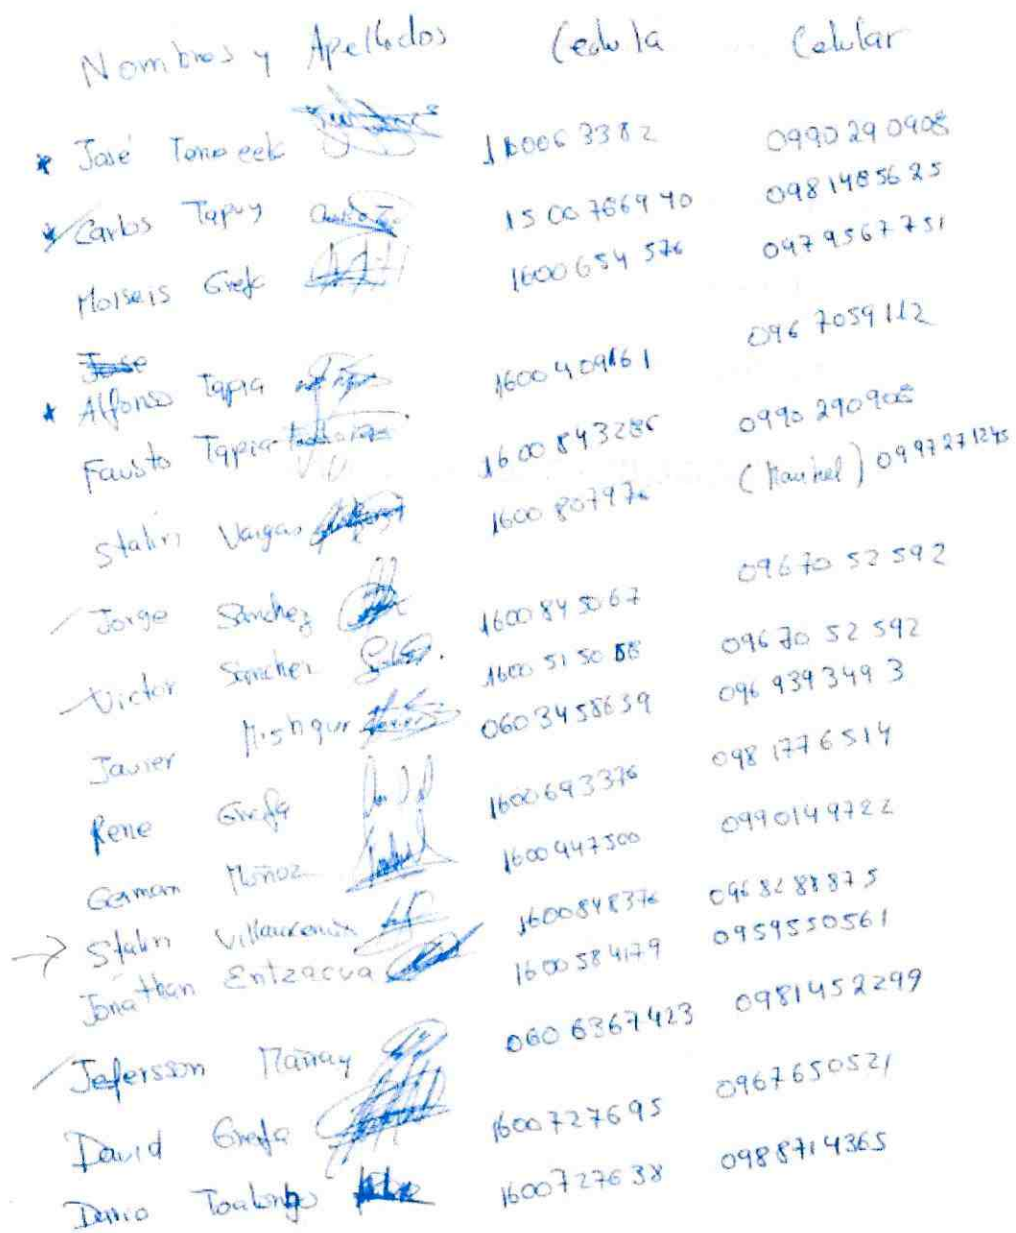 Nombres y Apellidos Cedula Celular
* José 160063382 0990290908
* Carlos Tapuy 1500766940 0981485625
Moiseis Grefa 1600654576 0979567751
Jose
* Alfonso Tapia 1600409161 0967059112
Fausto Tapia 1600843286 0990290908
Stalin Vargas 1600807976 (Manuel) 0997271245
Jorge Sanchez 1600845067 0967052592
Victor Sanchez 1600515088 0967052592
Javier 0603458639 0969393493
Rene Grefa 1600693376 0981776514
German Muñoz 1600947500 0990149722
→ Stalin Villavicencio 1600848376 0968288875
Jonathan Entzacua 1600584179 0959550561
Jefersson Mañay 0606367423 0981452299
David Grefa 1600727695 0967650521
Dario Toalongo 1600727638 0988714365